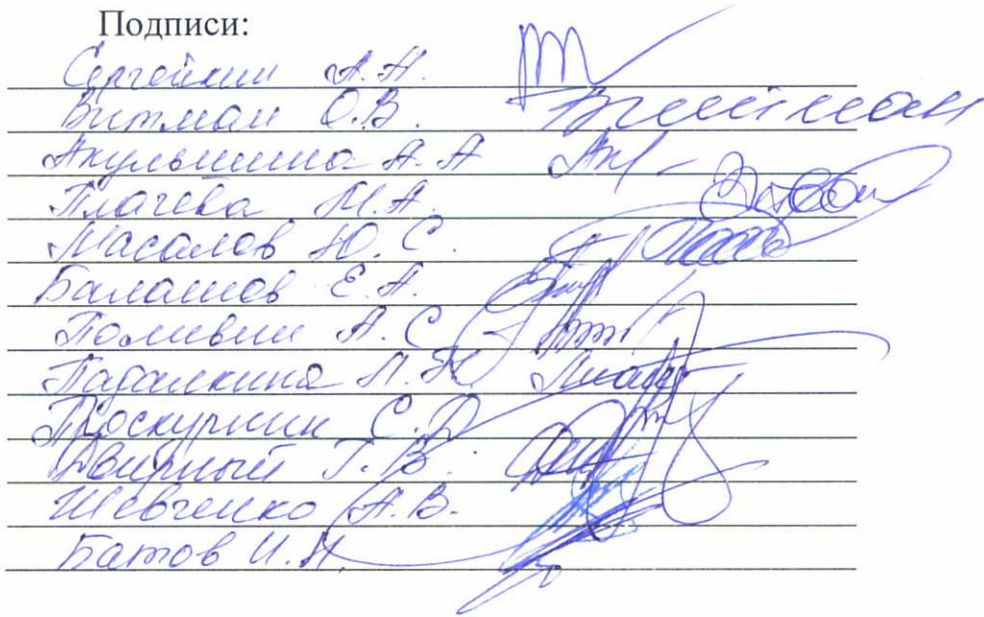 Подписи:
Сергейкин А.Н.
Витман О.В. Витман
Акульшина А.А Ак
Плачева М.А.
Масалов Ю.С.
Балашов Е.А.
Поливин А.С
Падалкина Л.Н
Проскурнин С.Д
Двирный Г.В.
Шевченко А.В.
Батов И.Н.